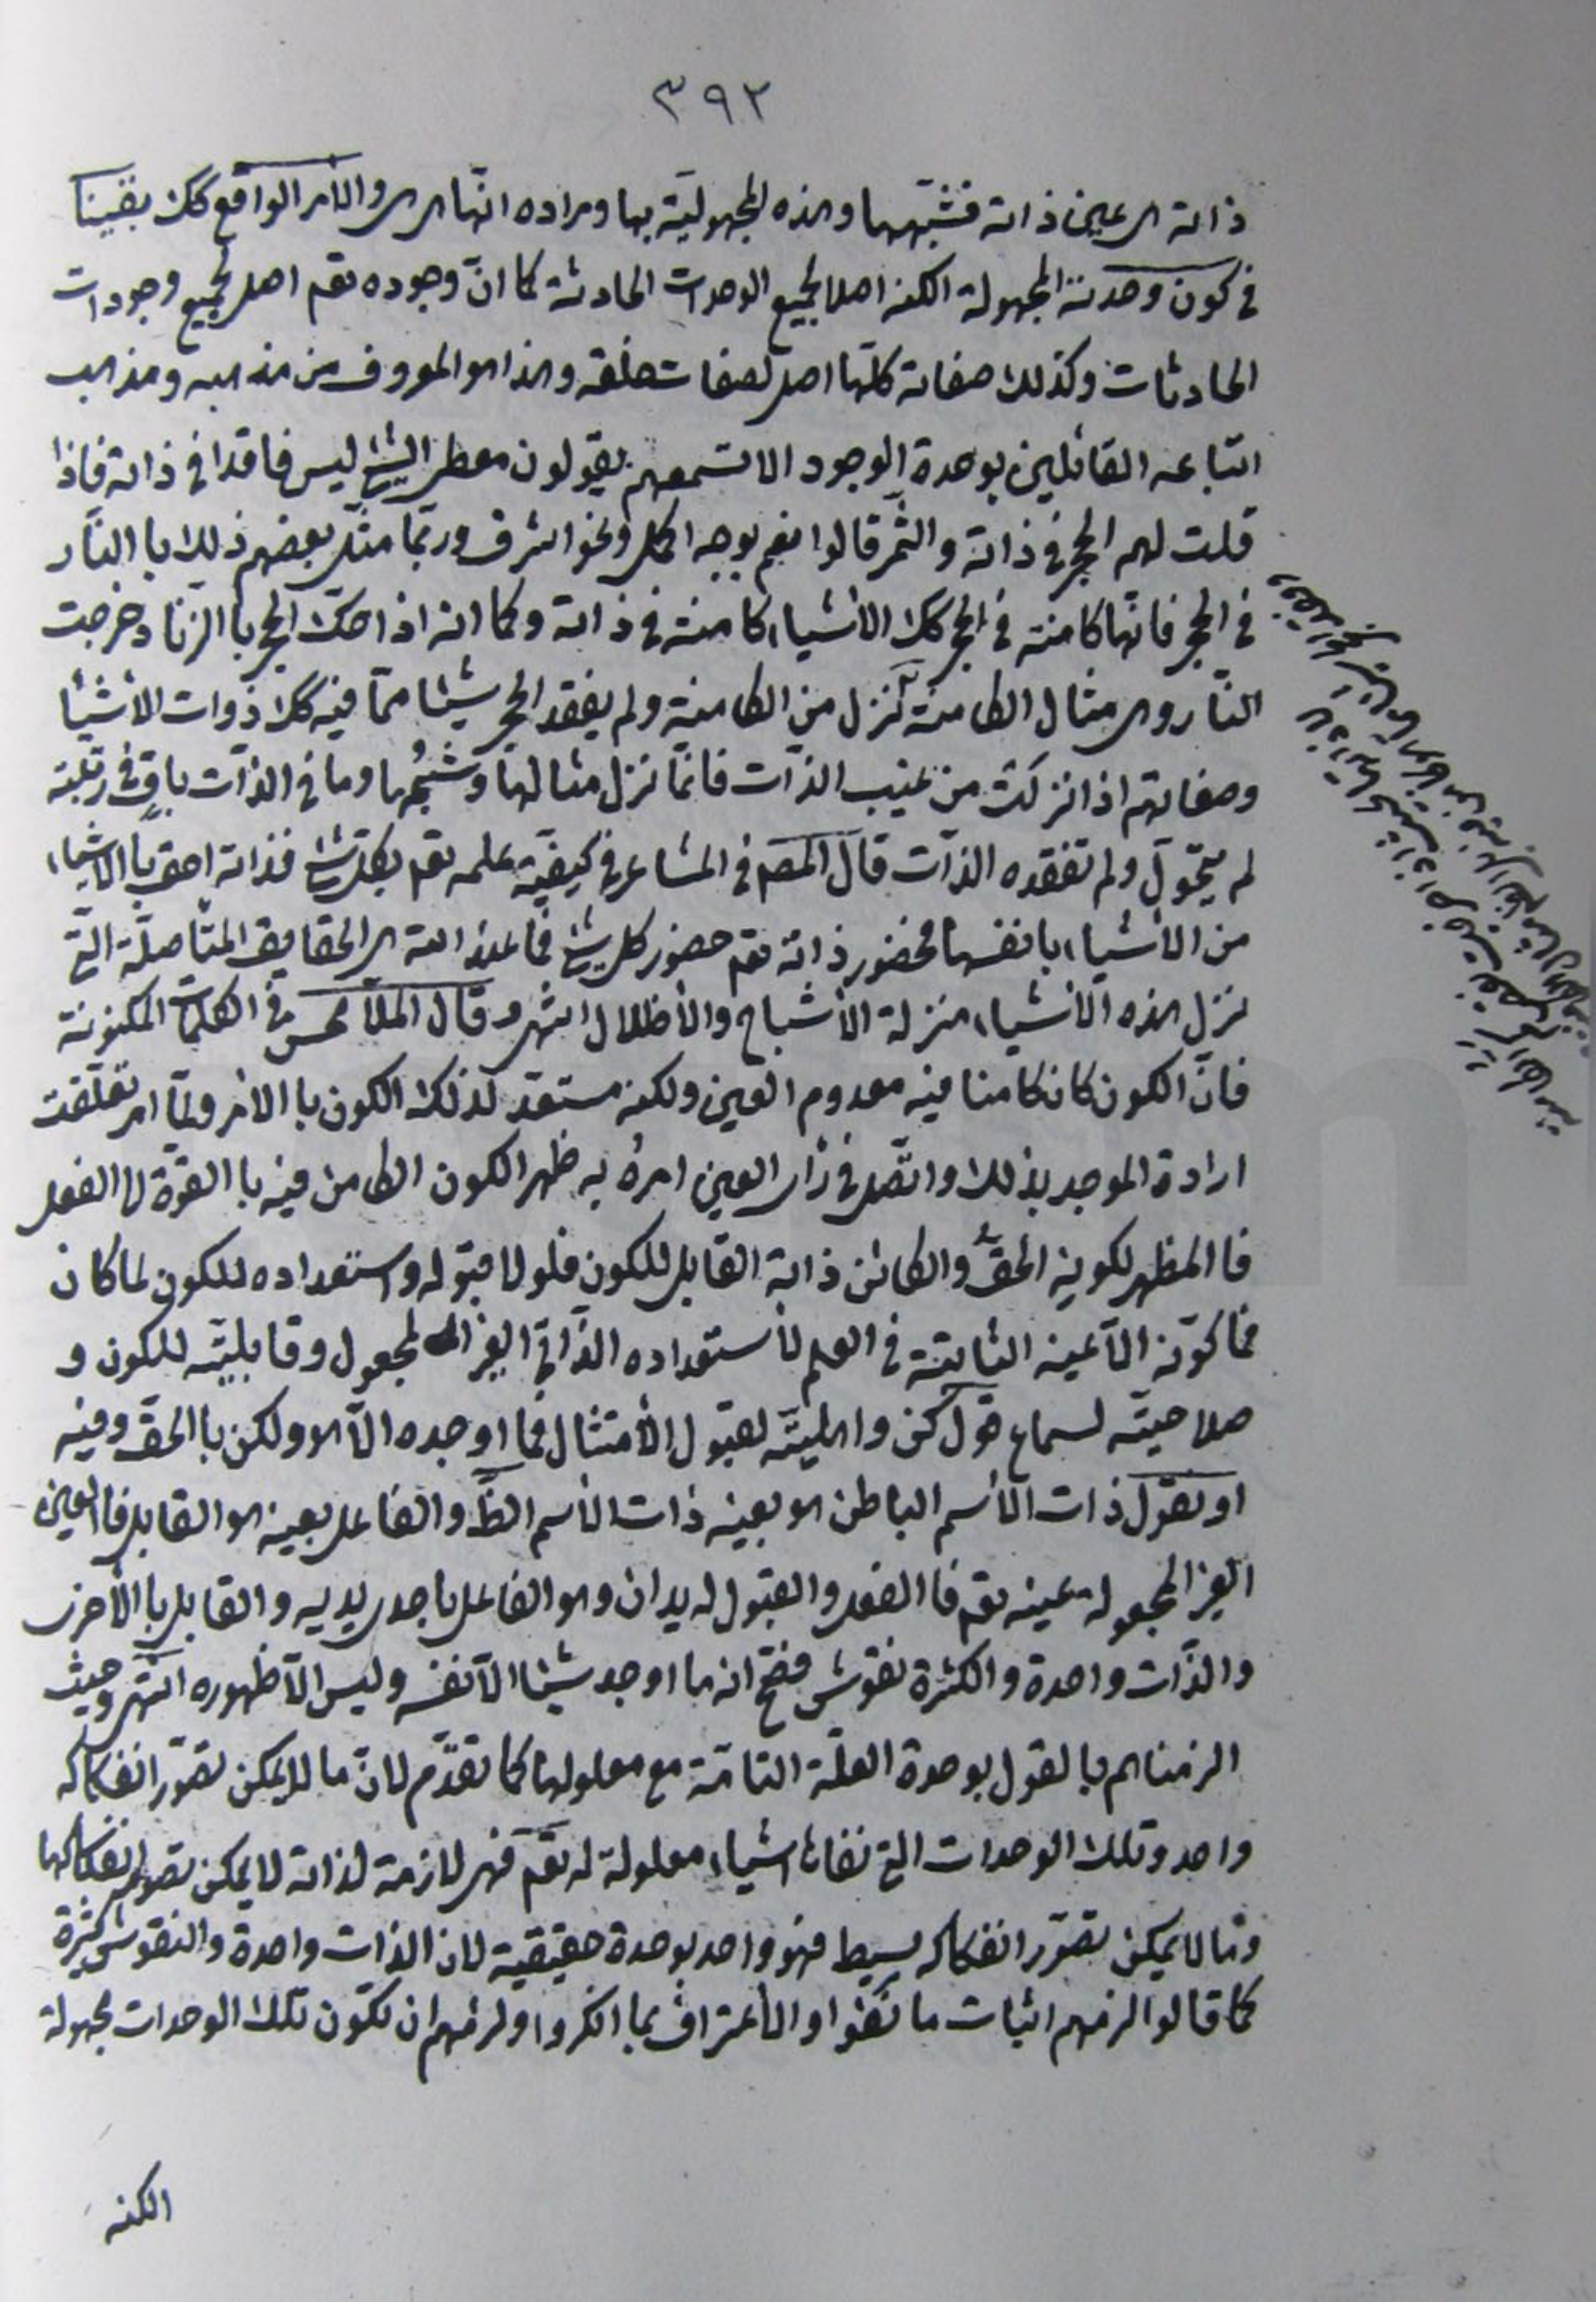 ٣٩٢
ذاته هى عين ذاته فشبهها وهذه المجهولية بها ومراده انّها هى هى والامر الواقع كك بقينا
فى كون وحدته المجهولة الكنه اصلا لجميع الوحدات الحادثة كما انّ وجوده تعم اصل لجميع وجودات
الحادثات وكذلك صفاته كلّها اصل لصفات خلقه وهذا هو المعروف من مذهبه ومذهب
اتباعه القائلين بوحدة الوجود الا تسمعهم يقولون معطى الشئ ليس فاقدا فى ذاته فاذا
قلت لهم الحجر فى ذاته والثّمر قالوا نعم بوجه اكمل ونحو اشرف وربّما مثّل بعضهم ذلك با النّار
فى الحجر فانّها كامنة فى الحجر كك الأشياء كامنة فى ذاته وكما انه اذا حكّ الحجر با الزّناد خرجت
النّار وهى مثال الكامنة تنزل من الكامنة ولم يفقد الحجر شيئا ممّا فيه كك ذوات الأشيا
وصفاتهم اذا نزلت من غيب الذّات فانّما نزل مثالها وشبحُها وما فى الذّات باقٍ فى رتبته
لم يتحوّل ولم تفقده الذّات قال المصم فى المشاعر فى كيفيّة علمه تعم بكل شئ فذاته احق با الاشياء
من الأشياء بانفسها فحضور ذاته تعم حضور كل شئ فما عند الله هى الحقايق المتأصلة التى
نزل هذه الأشياء منزلة الأشباح والأظلال انتهى وقال الملّا محسن فى الكلمات المكنونة
فانّ الكون كان كامنا فيه معدوم العين ولكنه مستعد لذلك الكون با الامر ولمّا امر تعلّقت
ارادة الموجد بذلك واتّصل فى رأى العين امرهُ به ظهر الكون الكامن فيه با القوّة الى الفعل
فا المظهر لكونه الحقّ والكائن ذاته القابل للكون فلولا قبوله واستعداده للكون لما كان
فما كوّنه الّا عينه الثابتة فى العلم لأستعداده الذّاتى الغير المجعول وقابليّته للكون و
صلاحيّته لسماع قول كن واهليّته لقبول الأمتثال فما اوجده الّا هو ولكن با الحقّ وفيه
او نقول ذات الأسم الباطن هو بعينه ذات الأسم الظّ والفاعل بعينه هو القابل فا العين
الغير المجعولة عينه تعم فا الفعل والقبول له يدان وهو الفاعل باحدى يديه والقابل با الأخرى
والذّات واحدة والكثرة نقوش فصحّ انه ما اوجد شيئا الّا نفسه وليس الّا ظهوره انتهى وحيث
الزمناهم با لقول بوحدة العلّة التامّة مع معلولها كما تقدّم لانّ ما لا يمكن تصوّر انفكاكه
واحد وتلك الوحدات التى نفاها اشياء معلولة له تعم فهى لازمة لذاته لا يمكن تصور انفكاكها
وما لا يمكن تصوّر انفكاكه بسيط فهو واحد بوحدة حقيقية لان الذات واحدة والنقوش كثيرة
كما قالوا لزمهم اثبات ما نفوا والأعتراف بما انكروا ولزمهم ان تكون تلك الوحدات مجهولة
الكنه